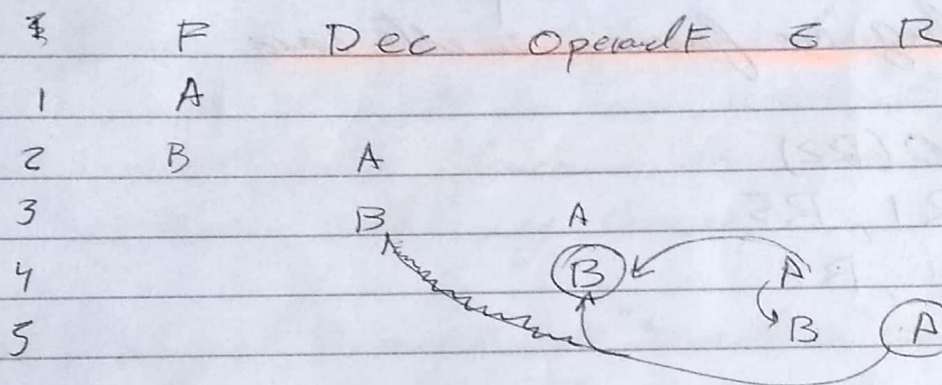 F Dec OperandF E R
1 A
2 B A
3 B A
4 B A
5 B A